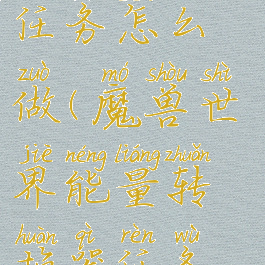 任务怎么
zuò mó shòu shì
做(魔兽世
jiè néng liàng zhuǎn
界能量转
huàn qì rèn wù
换器任务